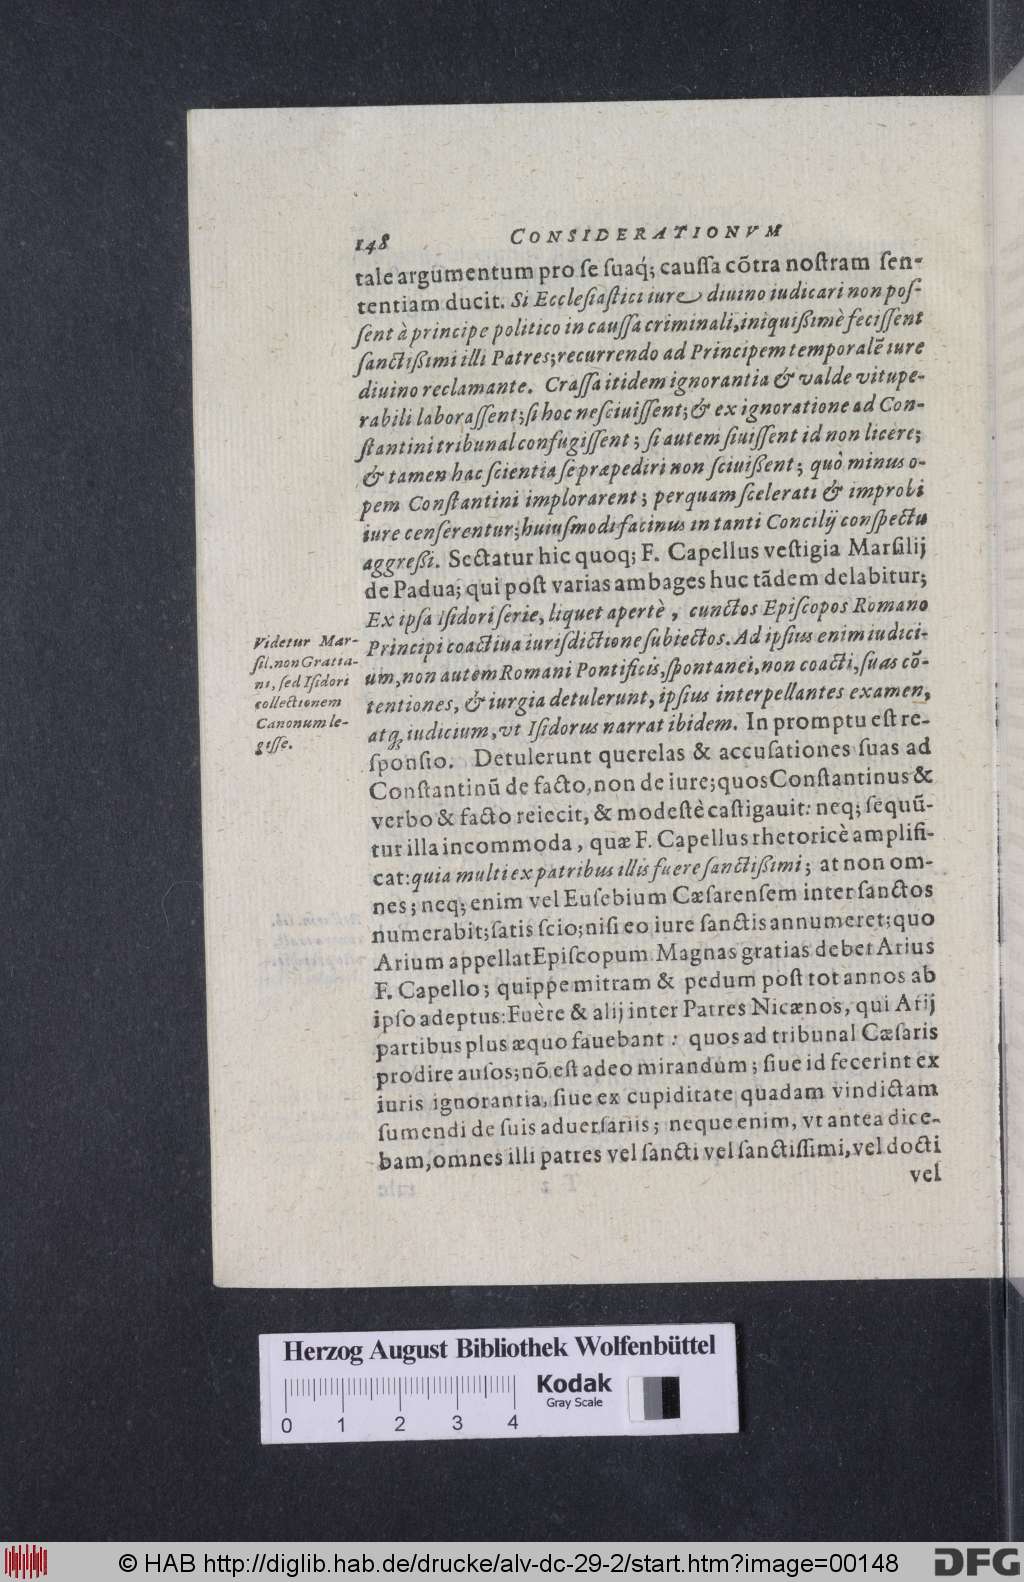 148 CONSIDERATIONVM
tale argumentum pro se suaq́; caussa cõtra nostram sen-
tentiam ducit. Si Ecclesiastici iure diuino iudicari non pos-
sent à principe politico in caussa criminali, iniquißimè fecissent
sanctißimi illi Patres; recurrendo ad Principem temporalẽ iure
diuino reclamante. Crassa itidem ignorantia & valde vitupe-
rabili laborassent; si hoc nesciuissent; & ex ignoratione ad Con-
stantini tribunal confugissent; si autem siuissent id non licere;
& tamen hac scientia se præpediri non sciuißent; quò minus o-
pem Constantini implorarent; perquam scelerati & improbi
iure censerentur; huiusmodi facinus in tanti Concilij conspectu
aggreßi. Sectatur hic quoq; F. Capellus vestigia Marsilij
de Padua; qui post varias ambages huc tãdem delabitur;
Ex ipsa isidori serie, liquet apertè, cunctos Episcopos Romano
Principi coactiua iurisdictione subiectos. Ad ipsius enim iudici-
um, non autem Romani Pontificis, spontanei, non coacti, suas cõ-
tentiones, & iurgia detulerunt, ipsius interpellantes examen,
atq; iudicium, vt Isidorus narrat ibidem. In promptu est re-
sponsio. Detulerunt querelas & accusationes suas ad
Constantinũ de facto, non de iure; quos Constantinus &
verbo & facto reiecit, & modestè castigauit: neq; sequũ-
tur illa incommoda, quæ F. Capellus rhetoricè amplifi-
cat: quia multi ex patribus illis fuere sanctißimi; at non om-
nes; neq; enim vel Eusebium Cæsarensem inter sanctos
numerabit; satis scio; nisi eo iure sanctis annumeret; quo
Arium appellat Episcopum. Magnas gratias debet Arius
F. Capello; quippe mitram & pedum post tot annos ab
ipso adeptus: Fuère & alij inter Patres Nicænos, qui Arij
partibus plus æquo fauebant: quos ad tribunal Cæsaris
prodire ausos; nõ est adeo mirandum; siue id fecerint ex
iuris ignorantia, siue ex cupiditate quadam vindictam
sumendi de suis aduersariis; neque enim, vt antea dice-
bam, omnes illi patres vel sancti vel sanctissimi, vel docti
vel
Videtur Mar-
sil. non Gratia-
ni, sed Isidori
collectionem
Canonum le-
gisse.
Herzog August Bibliothek Wolfenbüttel
Kodak
Gray Scale
0 1 2 3 4
© HAB http://diglib.hab.de/drucke/alv-dc-29-2/start.htm?image=00148
DFG